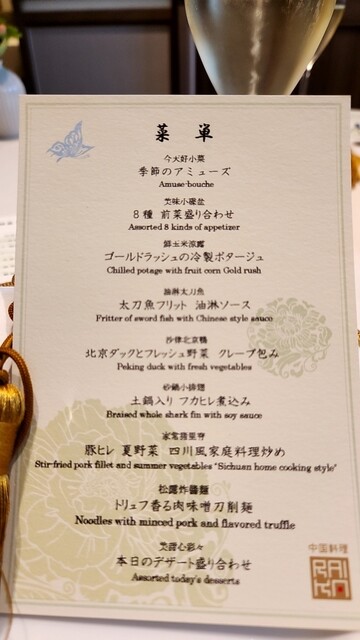 菜 単
今天好小菜
季節のアミューズ
Amuse-bouche
美味小碟盆
8種 前菜盛り合わせ
Assorted 8 kinds of appetizer
鮮玉米涼露
ゴールドラッシュの冷製ポタージュ
Chilled potage with fruit corn Gold rush
油淋太刀魚
太刀魚フリット 油淋ソース
Fritter of sword fish with Chinese style sauce
沙律北京鴨
北京ダックとフレッシュ野菜 クレープ包み
Peking duck with fresh vegetables
砂鍋小排翅
土鍋入り フカヒレ煮込み
Braised whole shark fin with soy sauce
豚ヒレ 夏野菜 四川風家庭料理炒め
Stir-fried pork fillet and summer vegetables "Sichuan home cooking style"
松露炸醤麺
トリュフ香る肉味噌刀削麺
Noodles with minced pork and flavored truffle
本日のデザート盛り合わせ
Assorted today's desserts
中国料理